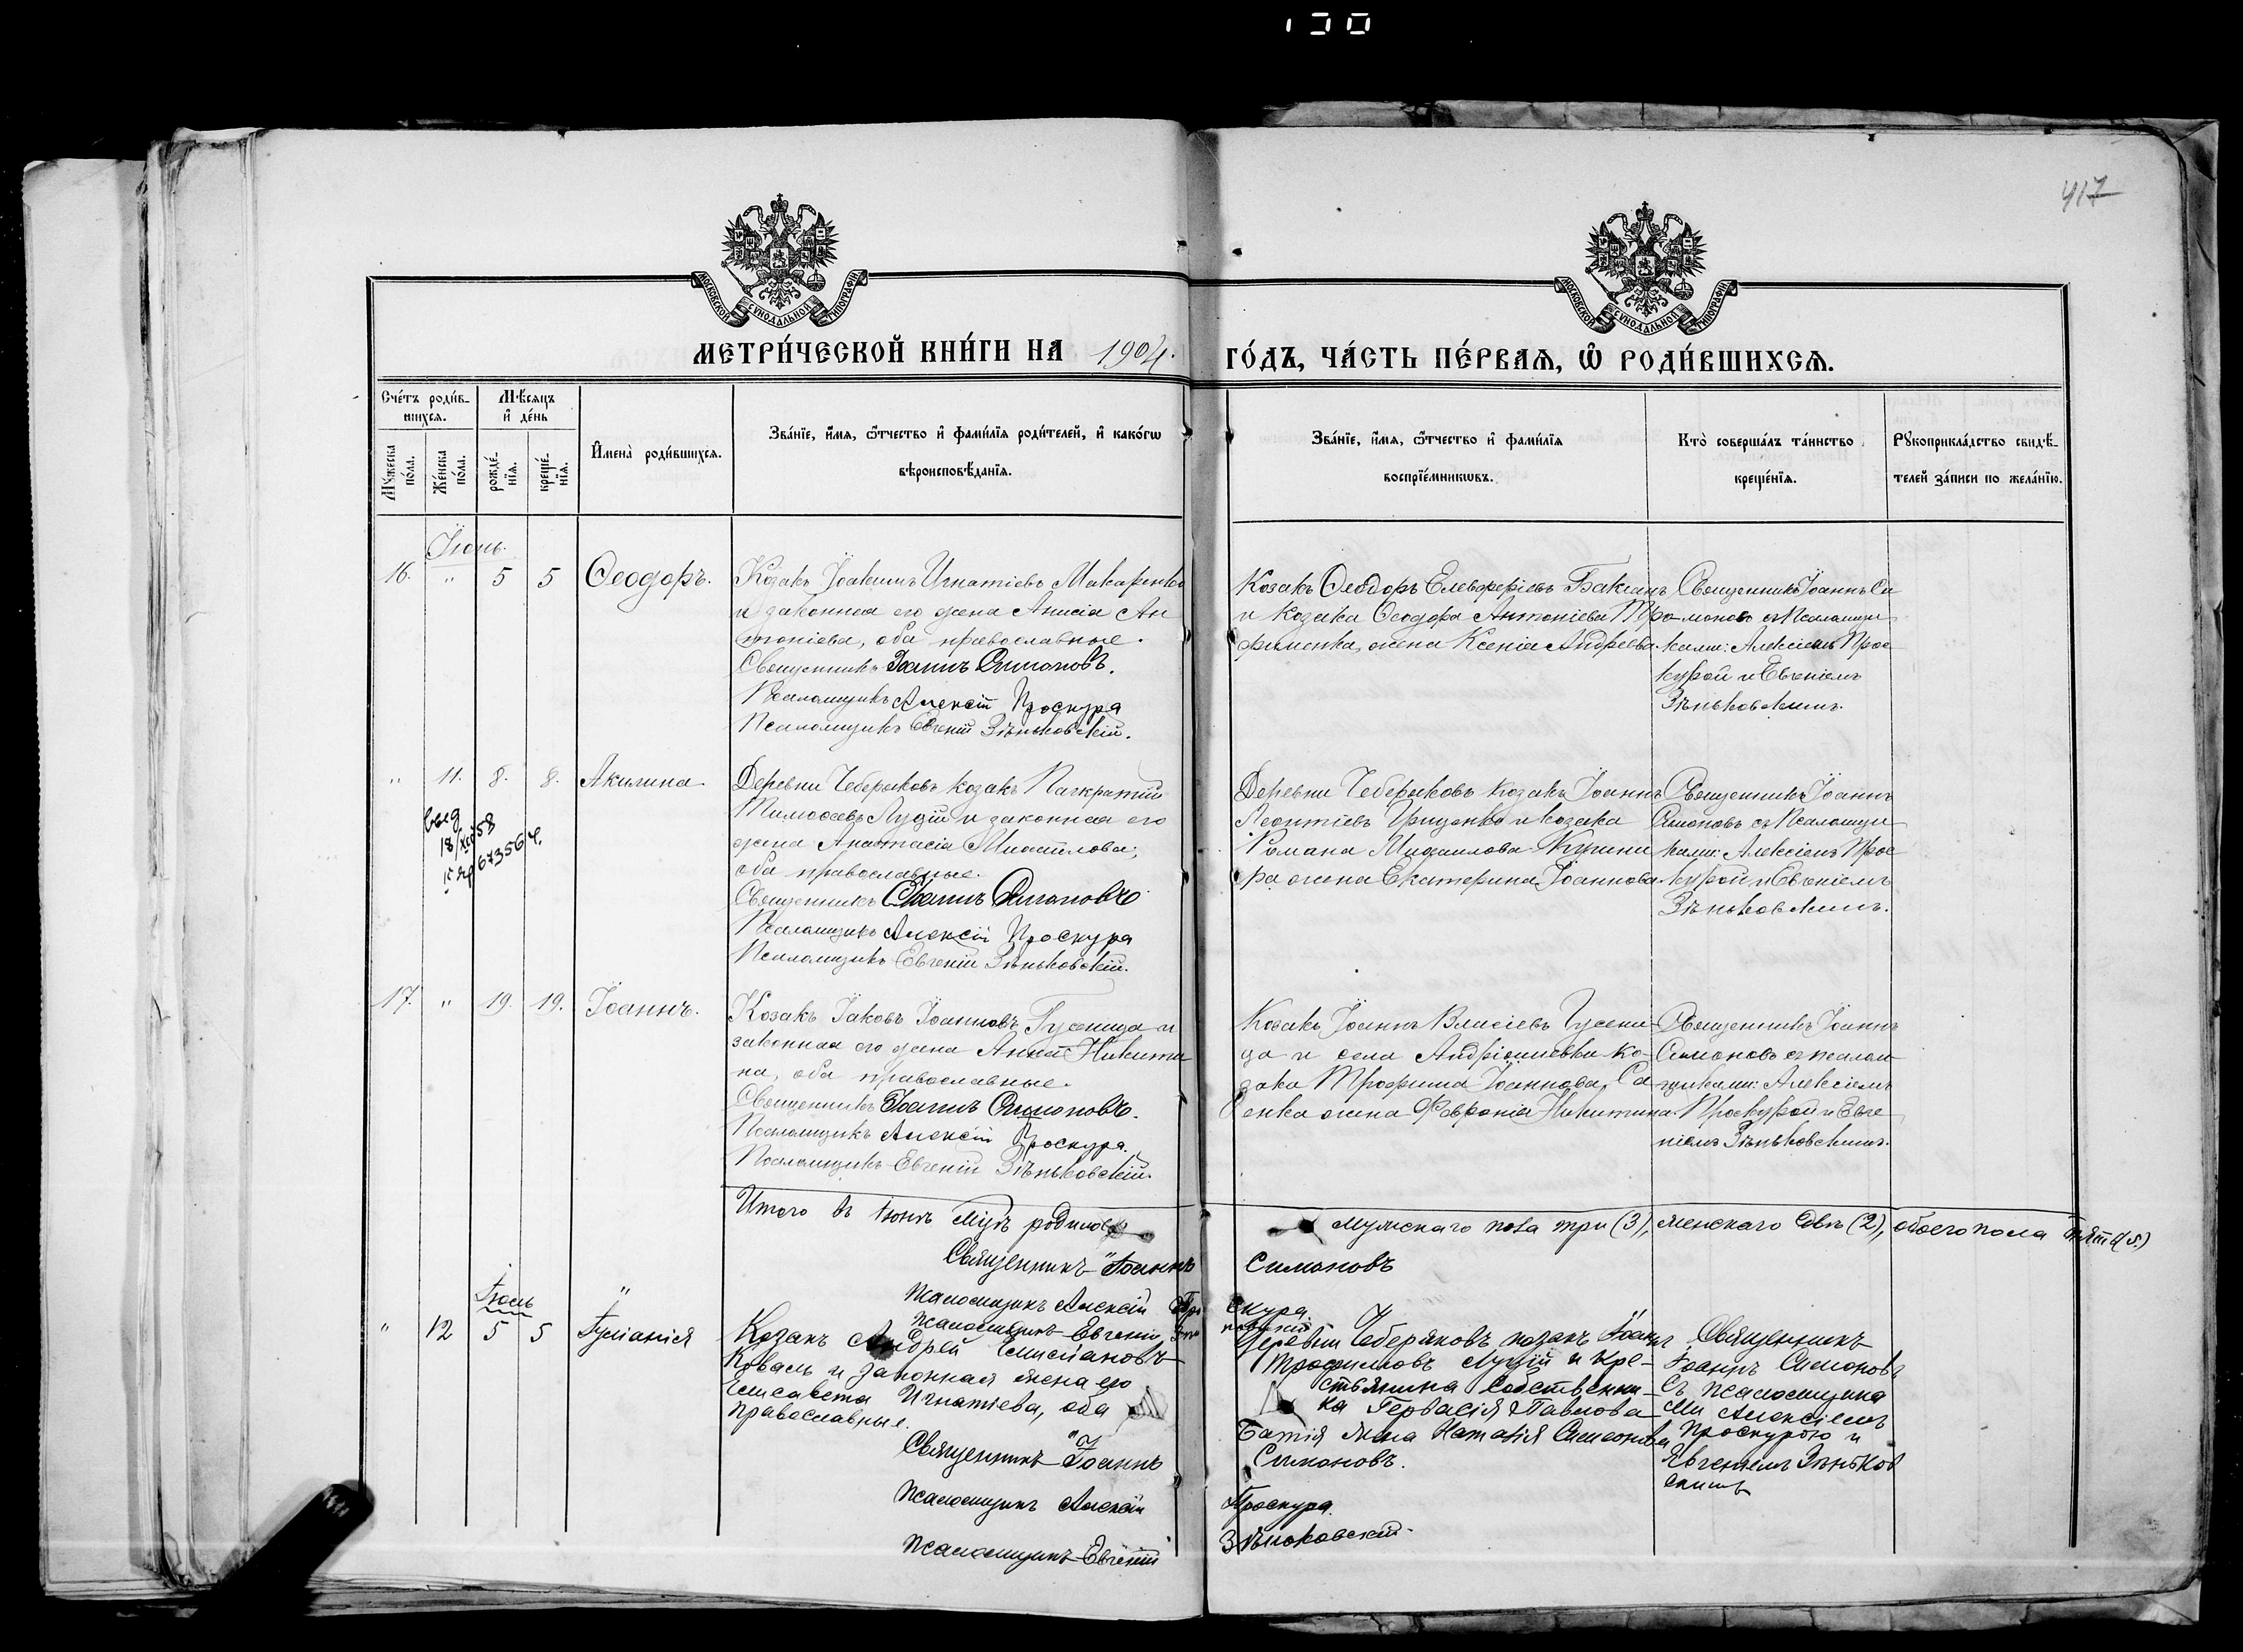 417
МОСКОВСКОЙ СѴНОДАЛЬНОЙ ТИПОГРАФІИ
МОСКОВСКОЙ СѴНОДАЛЬНОЙ ТИПОГРАФІИ
МЕТРИ́ЧЕСКОЙ КНИ́ГИ НА 1904. ГО́ДЪ, ЧА́СТЬ ПЕ́РВАѦ, Ѽ РОДИ́ВШИХСѦ.
Сче́тъ роди́в-
шихсѧ.
Мѣ́сѧцъ
и҆ де́нь
Мꙋ́жеска по́ла.
Же́нска по́ла.
рожде́-
нїѧ.
креще́-
нїѧ.
И҆мена̀ роди́вшихсѧ.
Зва́нїе, и҆́мѧ, ѻ҆́тчество и҆ фами́лїѧ роди́телей, и҆ како́гѡ
вѣроисповѣ́данїѧ.
Зва́нїе, и҆́мѧ, ѻ҆́тчество и҆ фами́лїѧ
воспрїе́мникѡвъ.
Кто̀ соверша́лъ та́инство
креще́нїѧ.
Рꙋкоприкла́дство свидѣ́-
телей за́писи по жела́нїю.
Іюнь.
16. " 5 5 Ѳеодоръ.
Козакъ Іоакимъ Игнатіевъ Макаренко
и законная его жена Анисія Ан
тоніева, оба православные.
Священникъ Іоаннъ Симоновъ.
Псаломщикъ Алексій Проскура
Псаломщикъ Евгеній Зѣньковскій.
Козакъ Ѳеодоръ Елевферіевъ Баклан
и козака Ѳеодора Антоніева Тро
фименка жена Ксенія Андреева.
Священникъ Іоаннъ Си
моновъ съ Псаломщи
ками: Алексіемъ Прос
курой и Евгеніемъ
Зѣньковскимъ.
" 11. 8. 8. Акилина
выд
18/XII 58
673564
Деревни Чеберяковъ козакъ Панкратій
Тимоѳеевъ Луцій и законная его
жена Анастасія Михайлова,
оба православные.
Священникъ Іоаннъ Симоновъ
Псаломщикъ Алексій Проскура
Псаломщикъ Евгеній Зѣньковскій.
Деревни Чеберяковъ козакъ Іоаннъ
Леонтіевъ Грищенко и козака
Романа Михаилова
жена Екатерина Іоаннова.
Священникъ Іоаннъ
Симоновъ съ Псаломщи
ками: Алексіемъ Прос
курой и Евгеніемъ
Зѣньковскимъ.
17. " 19. 19. Іоаннъ.
Козакъ Іаковъ Іоанновъ Гусеница и
законная его жена Анна Никити
на, оба православные.
Священникъ Іоаннъ Симоновъ.
Псаломщикъ Алексій Проскура.
Псаломщикъ Евгеній Зѣньковскій.
Козакъ Іоаннъ Власіевъ Гусени-
ца и села Андріяшевки ко-
зака Трофима Іоаннова Са
енка жена Февронія Никитина.
Священникъ Іоаннъ
Симоновъ съ псалом
щиками: Алексіемъ
Проскурой и Евге
ніемъ Зѣньковскимъ.
Итого въ іюнѣ мцѣ родилось мужскаго пола три (3), женскаго двѣ (2), обоего пола пять (5.)
Священникъ Іоаннъ Симоновъ
Псаломщикъ Алексій Проскура
Псаломщикъ Евгеній
Іюль
" 12 5 5 Іуліанія
Козакъ Андрей Емиліановъ
Коваль и законная жена его
Елисавета Игнатіева, оба
православные.
Священникъ Іоаннъ Симоновъ.
Псаломщикъ Алексій Проскура.
Псаломщикъ Евгеній Зѣньковскій.
Деревни Чеберяковъ козакъ Іоаннъ
Трофимовъ Луцій и кре-
стьянина собственни-
ка Гервасія Павлова
Батія жена Наталія Симеонова
Священникъ
Іоаннъ Симоновъ
съ псаломщика
ми Алексіемъ
Проскурою и
Евгеніемъ Зѣньков
скимъ